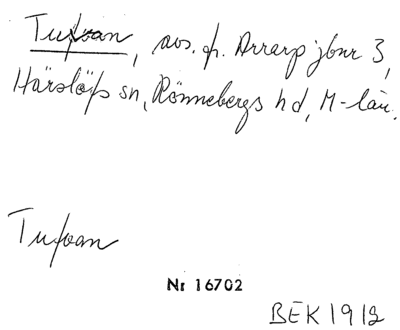 Tufvan, avs. fr. Arrarp jbnr 3,
Härslöfs sn, Rönnebergs hd, M-län.
Tufvan
Nr 16702
BEK 1912